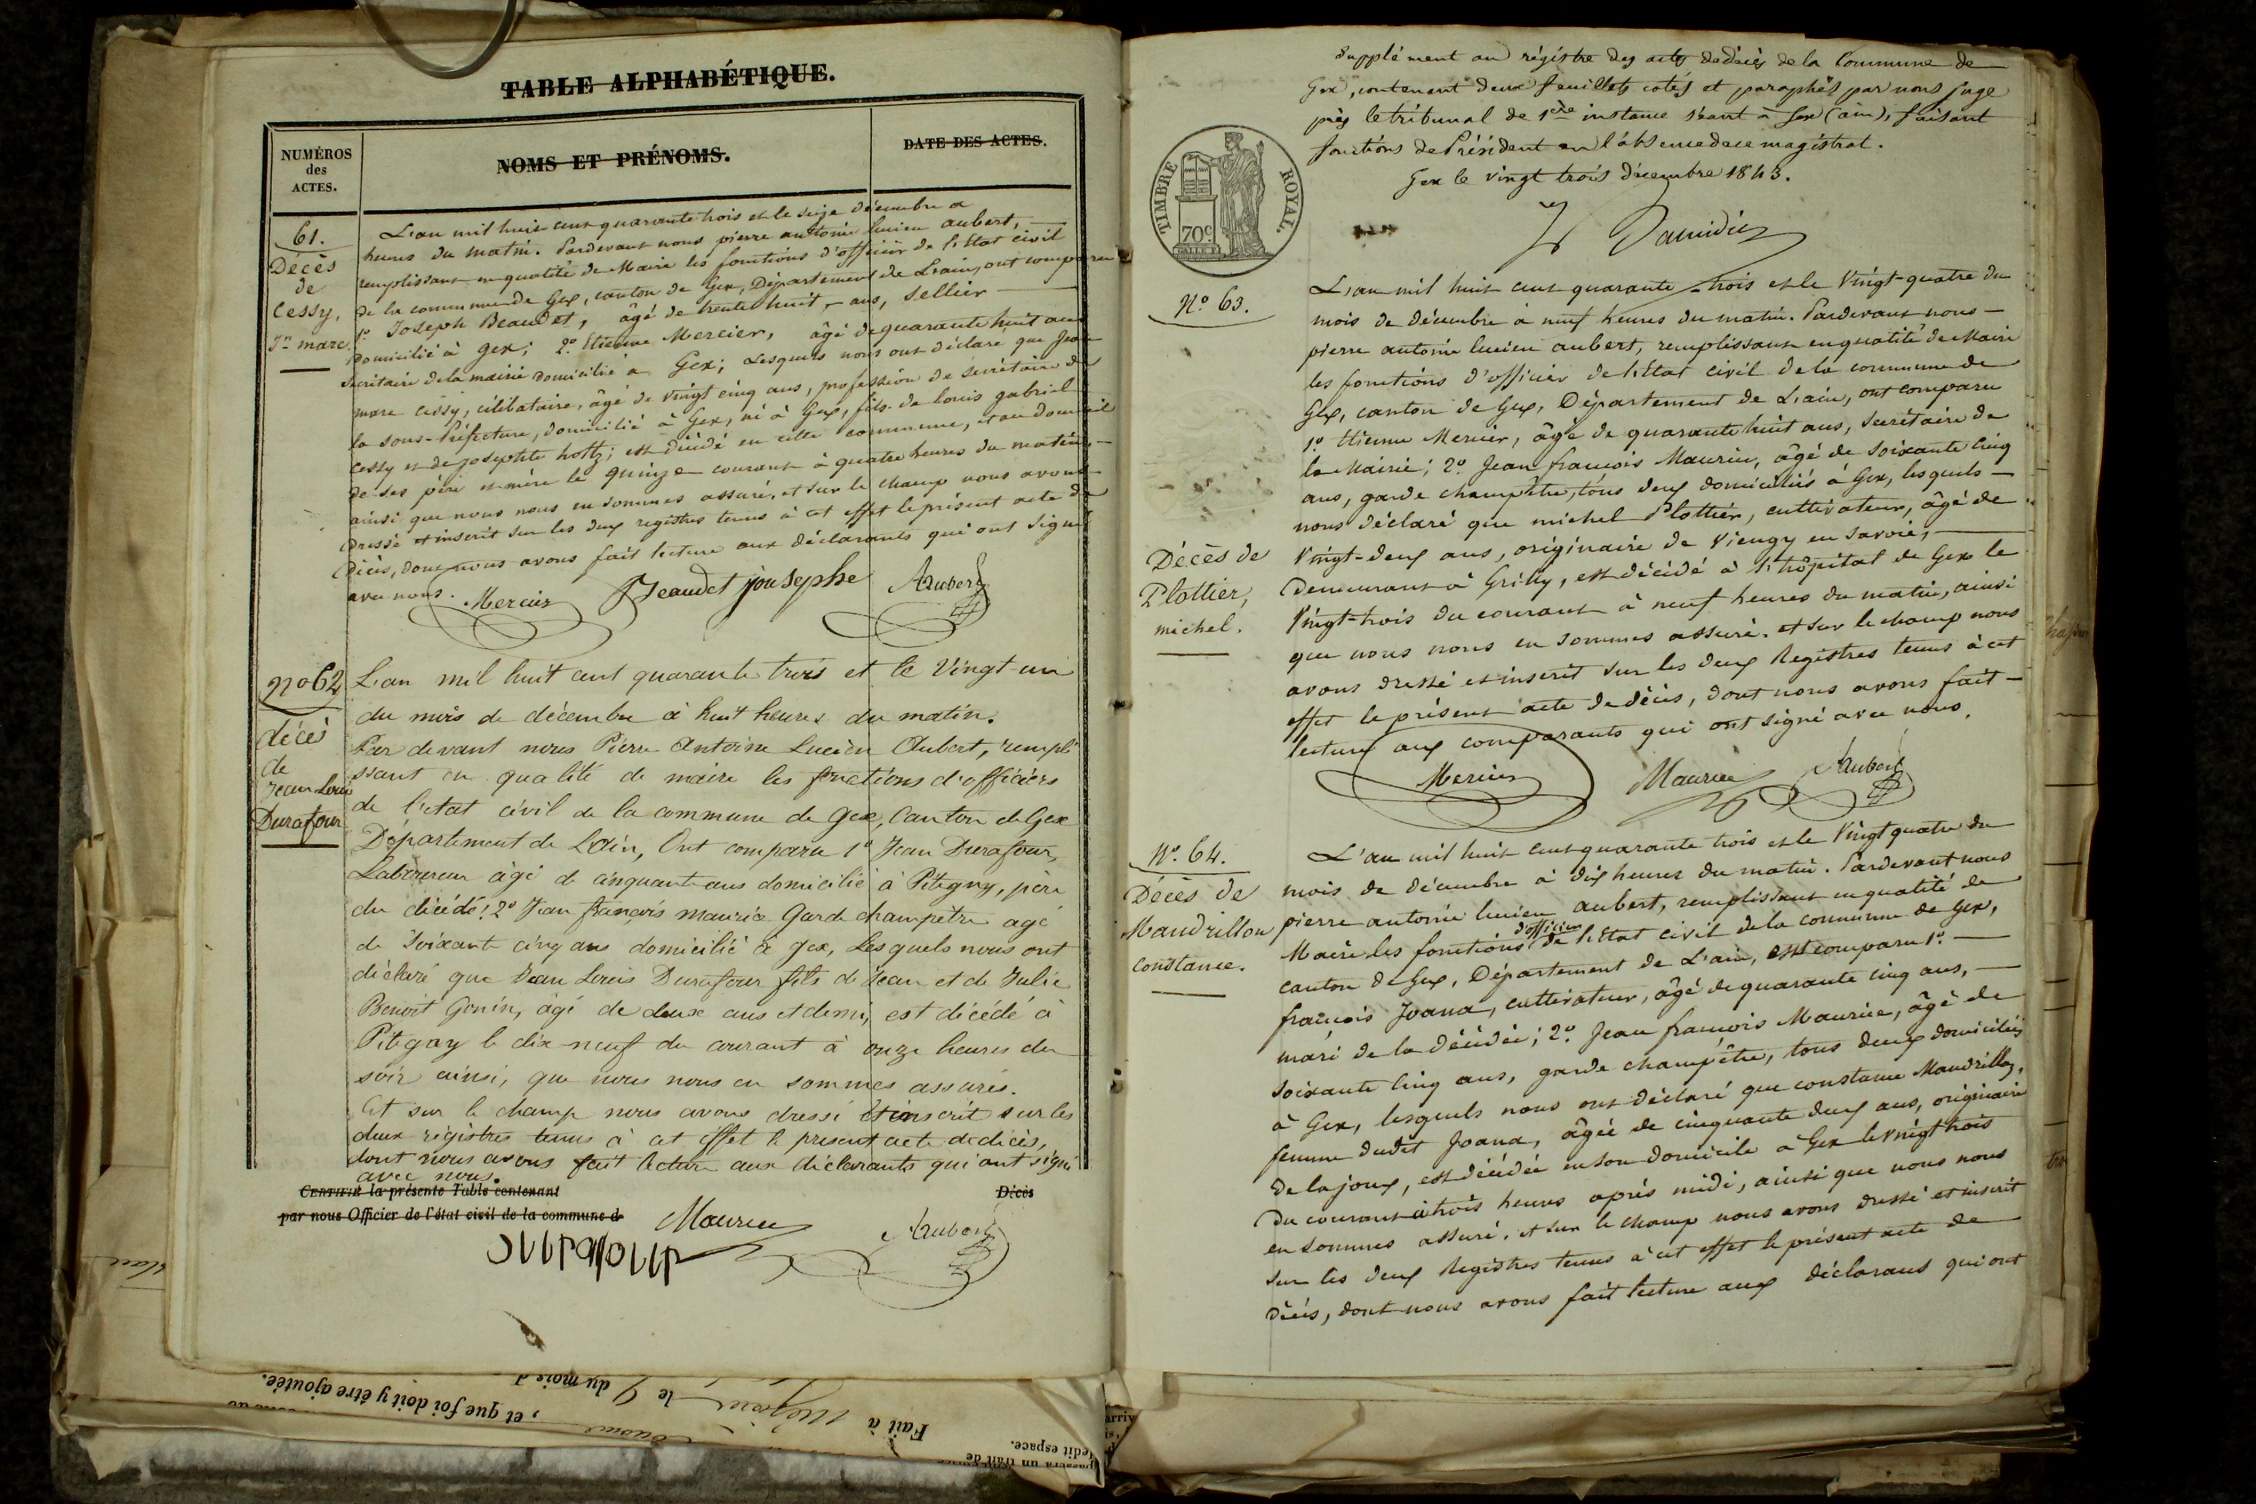 TABLE ALPHABÉTIQUE.
NUMÉROS
des
ACTES.
NOMS ET PRÉNOMS.
DATE DES ACTES.
61.
Décès
de
Cessy,
Jn marc
L'an mil huit cent quarante trois et le seize décembre a
heures du matin. Pardevant nous pierre antoine lucien aubert,
remplissant en qualité de Maire les fonctions d'officier de l'Etat civil
de la commune de Gex, canton de Gex, Département de L'ain, ont comparu
1o Joseph Beaudet, âgé de trente huit ans, sellier
domicilié à gex; 2o Etienne Mercier, âgé de quarante huit ans
secrétaire de la mairie domicilié à Gex; Lesquels nous ont déclaré que Jean
marc cessy, célibataire, âgé de vingt cinq ans, profession de secrétaire de
la sous-Préfecture, domicilié à Gex, né à Gex, fils de louis gabriel
cessy et de josephte hottz; est décédé en cette commune, et au domicile
de ses père et mère le quinze courant à quatre heures du matin,
ainsi que nous nous en sommes assuré, et sur le champ nous avons
dressé et inscrit sur les deux registres tenus à cet effet le présent acte de
décès, dont nous avons fait lecture aux déclarants qui ont signé
avec nous.
Mercier Beaudet jousephe Aubert
No 62
décès
de
Jean Louis
Durafour
L'an mil huit cent quarante trois et le Vingt-un
du mois de décembre à huit heures du matin.
Par devant nous Pierre Antoine Lucien Aubert, rempli
ssant en qualité de maire les fonctions d'officiers
de l'etat civil de la commune de Gex, Canton de Gex
Département de L'Ain, Ont comparu 1o Jean Durafour,
Laboureur âgé de cinquante ans domicilié à Pitegny, père
du décédé; 2o Jean françois maurice Garde champètre agé
de Soixante cinq ans domicilié à Gex, Lesquels nous ont
déclaré que Jean Louis Durafour fils de Jean et de Julie
Benoit Gonin, âgé de deux ans et demi, est décédé à
Pitegny le dix-neuf du courant à onze heures du
soir ainsi, que nous nous en sommes assurés.
Et sur le champ nous avons dressé et inscrit sur les
deux régistres tenus à cet effet le présent acte de décès,
dont nous avons fait lecture aux déclarants qui ont signé
avec nous.
CERTIFIÉ la présente Table contenant Décès
par nous Officier de l'état civil de la commune d
Maurice Aubert
Supplément au régistre des actes de décès de la Commune de
Gex, contenant deux feuillets cotés et paraphés par nous Juge
près le tribunal de 1ère instance séant à Gex (ain), faisant
fonctions de Président en l'absence de ce magistrat.
Gex le vingt trois décembre 1843.
TIMBRE ROYAL.
70c
No. 63.
Décès de
Plottier,
michel.
L'an mil huit cent quarante-trois et le Vingt-quatre du
mois de décembre à neuf heures du matin. Pardevant nous
pierre antoine lucien aubert, remplissant en qualité de Maire
les fonctions d'officier de l'Etat civil de la commune de
Gex, canton de Gex, Département de L'ain, ont comparu
1o. Etienne Mercier, âgé de quarante huit ans, secrétaire de
la Mairie; 2o. Jean françois Maurice, âgé de soixante Cinq
ans, garde champêtre, tous deux domiciliés à Gex, lesquels
nous déclaré que michel Plottier, cultivateur, âgé de
Vingt-deux ans, originaire de Viengy en Savoie,
Demeurant à Grilly, est décédé à l'hôpital de Gex le
Vingt-trois du courant à neuf heures du matin, ainsi
que nous nous en sommes assuré. et sur le champ nous
avons dressé et inscrit sur les deux Registres tenus à cet
effet le présent acte de décès, dont nous avons fait
lecture aux comparants qui ont signé avec nous.
Mercier Maurice Aubert
No. 64.
Décès de
Mandrillon
Constance.
L'an mil huit cent quarante trois et le Vingt quatre du
mois de décembre à dix heures du matin. Pardevant nous
pierre antoine lucien aubert, remplissant en qualité de
Maire les fonctions d'officier de l'Etat civil de la commune de Gex,
canton de Gex, Département de L'ain, est comparu 1o.
françois Joana, cultivateur, âgé de quarante cinq ans,
mari de la décédée; 2o. Jean françois Maurice, âgé de
soixante Cinq ans, garde champêtre, tous deux domiciliés
à Gex, lesquels nous ont déclaré que constance Mandrillon,
femme dudit Joana, âgée de cinquante deux ans, originaire
de lajoux, est décédée en son domicile à Gex le vingt trois
du courant à trois heures après midi, ainsi que nous nous
en sommes assuré. et sur le champ nous avons dressé et inscrit
sur les deux Registres tenus à cet effet le présent acte de
décès, dont nous avons fait lecture aux déclarans qui ont
Fait à le 9 du mois d
, et que foi doit y être ajoutée.
ledit espace.
un trait de